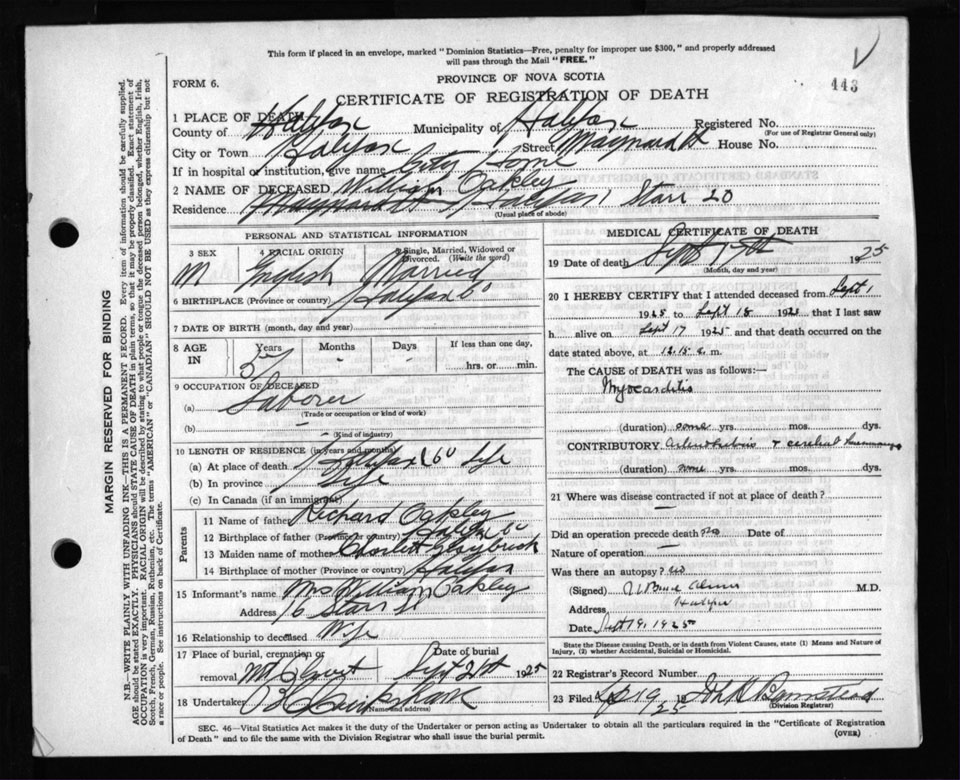 This form if placed in an envelope, marked "Dominion Statistics—Free, penalty for improper use $300," and properly addressed
will pass through the Mail "FREE."
443
FORM 6.
PROVINCE OF NOVA SCOTIA
CERTIFICATE OF REGISTRATION OF DEATH
1 PLACE OF DEATH
County of Halifax Municipality of Halifax Registered No.
(For use of Registrar General only)
City or Town Halifax Street Maynard St House No.
If in hospital or institution, give name City Home
2 NAME OF DECEASED William Oakley
Residence Halifax Starr
(Usual place of abode)
PERSONAL AND STATISTICAL INFORMATION
3 SEX 4 RACIAL ORIGIN 5 Single, Married, Widowed or Divorced. (Write the word)
M English Married
6 BIRTHPLACE (Province or country) Halifax Co
7 DATE OF BIRTH (month, day and year)
8 AGE IN Years Months Days If less than one day,
hrs. or min.
9 OCCUPATION OF DECEASED
(a) Laborer
(Trade or occupation or kind of work)
(b) —
(Kind of industry)
10 LENGTH OF RESIDENCE (in years and months)
(a) At place of death Halifax Co Life
(b) In province Life
(c) In Canada (if an immigrant)
Parents
11 Name of father Richard Oakley
12 Birthplace of father (Province or country) Halifax Co
13 Maiden name of mother
14 Birthplace of mother (Province or country) Halifax
15 Informant's name Mrs William Oakley
Address 6 Starr St
16 Relationship to deceased Wife
17 Place of burial, cremation or removal Date of burial
Mt Olivet Sept 21st 1925
18 Undertaker
(Name and address)
MEDICAL CERTIFICATE OF DEATH
19 Date of death Sept 1925
(Month, day and year)
20 I HEREBY CERTIFY that I attended deceased from Sept 1
1925 to Sept 18 192 that I last saw
h alive on Sept 17 1925 and that death occurred on the
date stated above, at 12.15 a. m.
The CAUSE of DEATH was as follows:—
Myocarditis
(duration) some yrs. mos. dys.
CONTRIBUTORY & cerebral
(duration) some yrs. mos. dys.
21 Where was disease contracted if not at place of death?
—
Did an operation precede death no Date of
Nature of operation —
Was there an autopsy? no
(Signed) M.D.
Address Halifax
Date Sept 19, 1925
State the Disease causing Death, or in death from Violent Causes, state (1) Means and Nature of
Injury, (2) whether Accidental, Suicidal or Homicidal.
22 Registrar's Record Number
23 Filed Sep 19 1925
(Division Registrar)
SEC. 46—Vital Statistics Act makes it the duty of the Undertaker or person acting as Undertaker to obtain all the particulars required in the "Certificate of Registration
of Death" and to file the same with the Division Registrar who shall issue the burial permit.
(OVER)
MARGIN RESERVED FOR BINDING
N.B.—WRITE PLAINLY WITH UNFADING INK—THIS IS A PERMANENT RECORD. Every item of information should be carefully supplied.
AGE should be stated EXACTLY. PHYSICIANS should STATE CAUSE OF DEATH in plain terms, so that it may be properly classified. Exact statement of
OCCUPATION is very important. RACIAL ORIGIN will be described by stating to what people or tongue the deceased person belonged, whether English, Irish,
Scotch, French, German, Russian, Ruthenian, etc. The terms "AMERICAN" or "CANADIAN" SHOULD NOT BE USED as they express citizenship but not
a race or people. See instructions on back of Certificate.